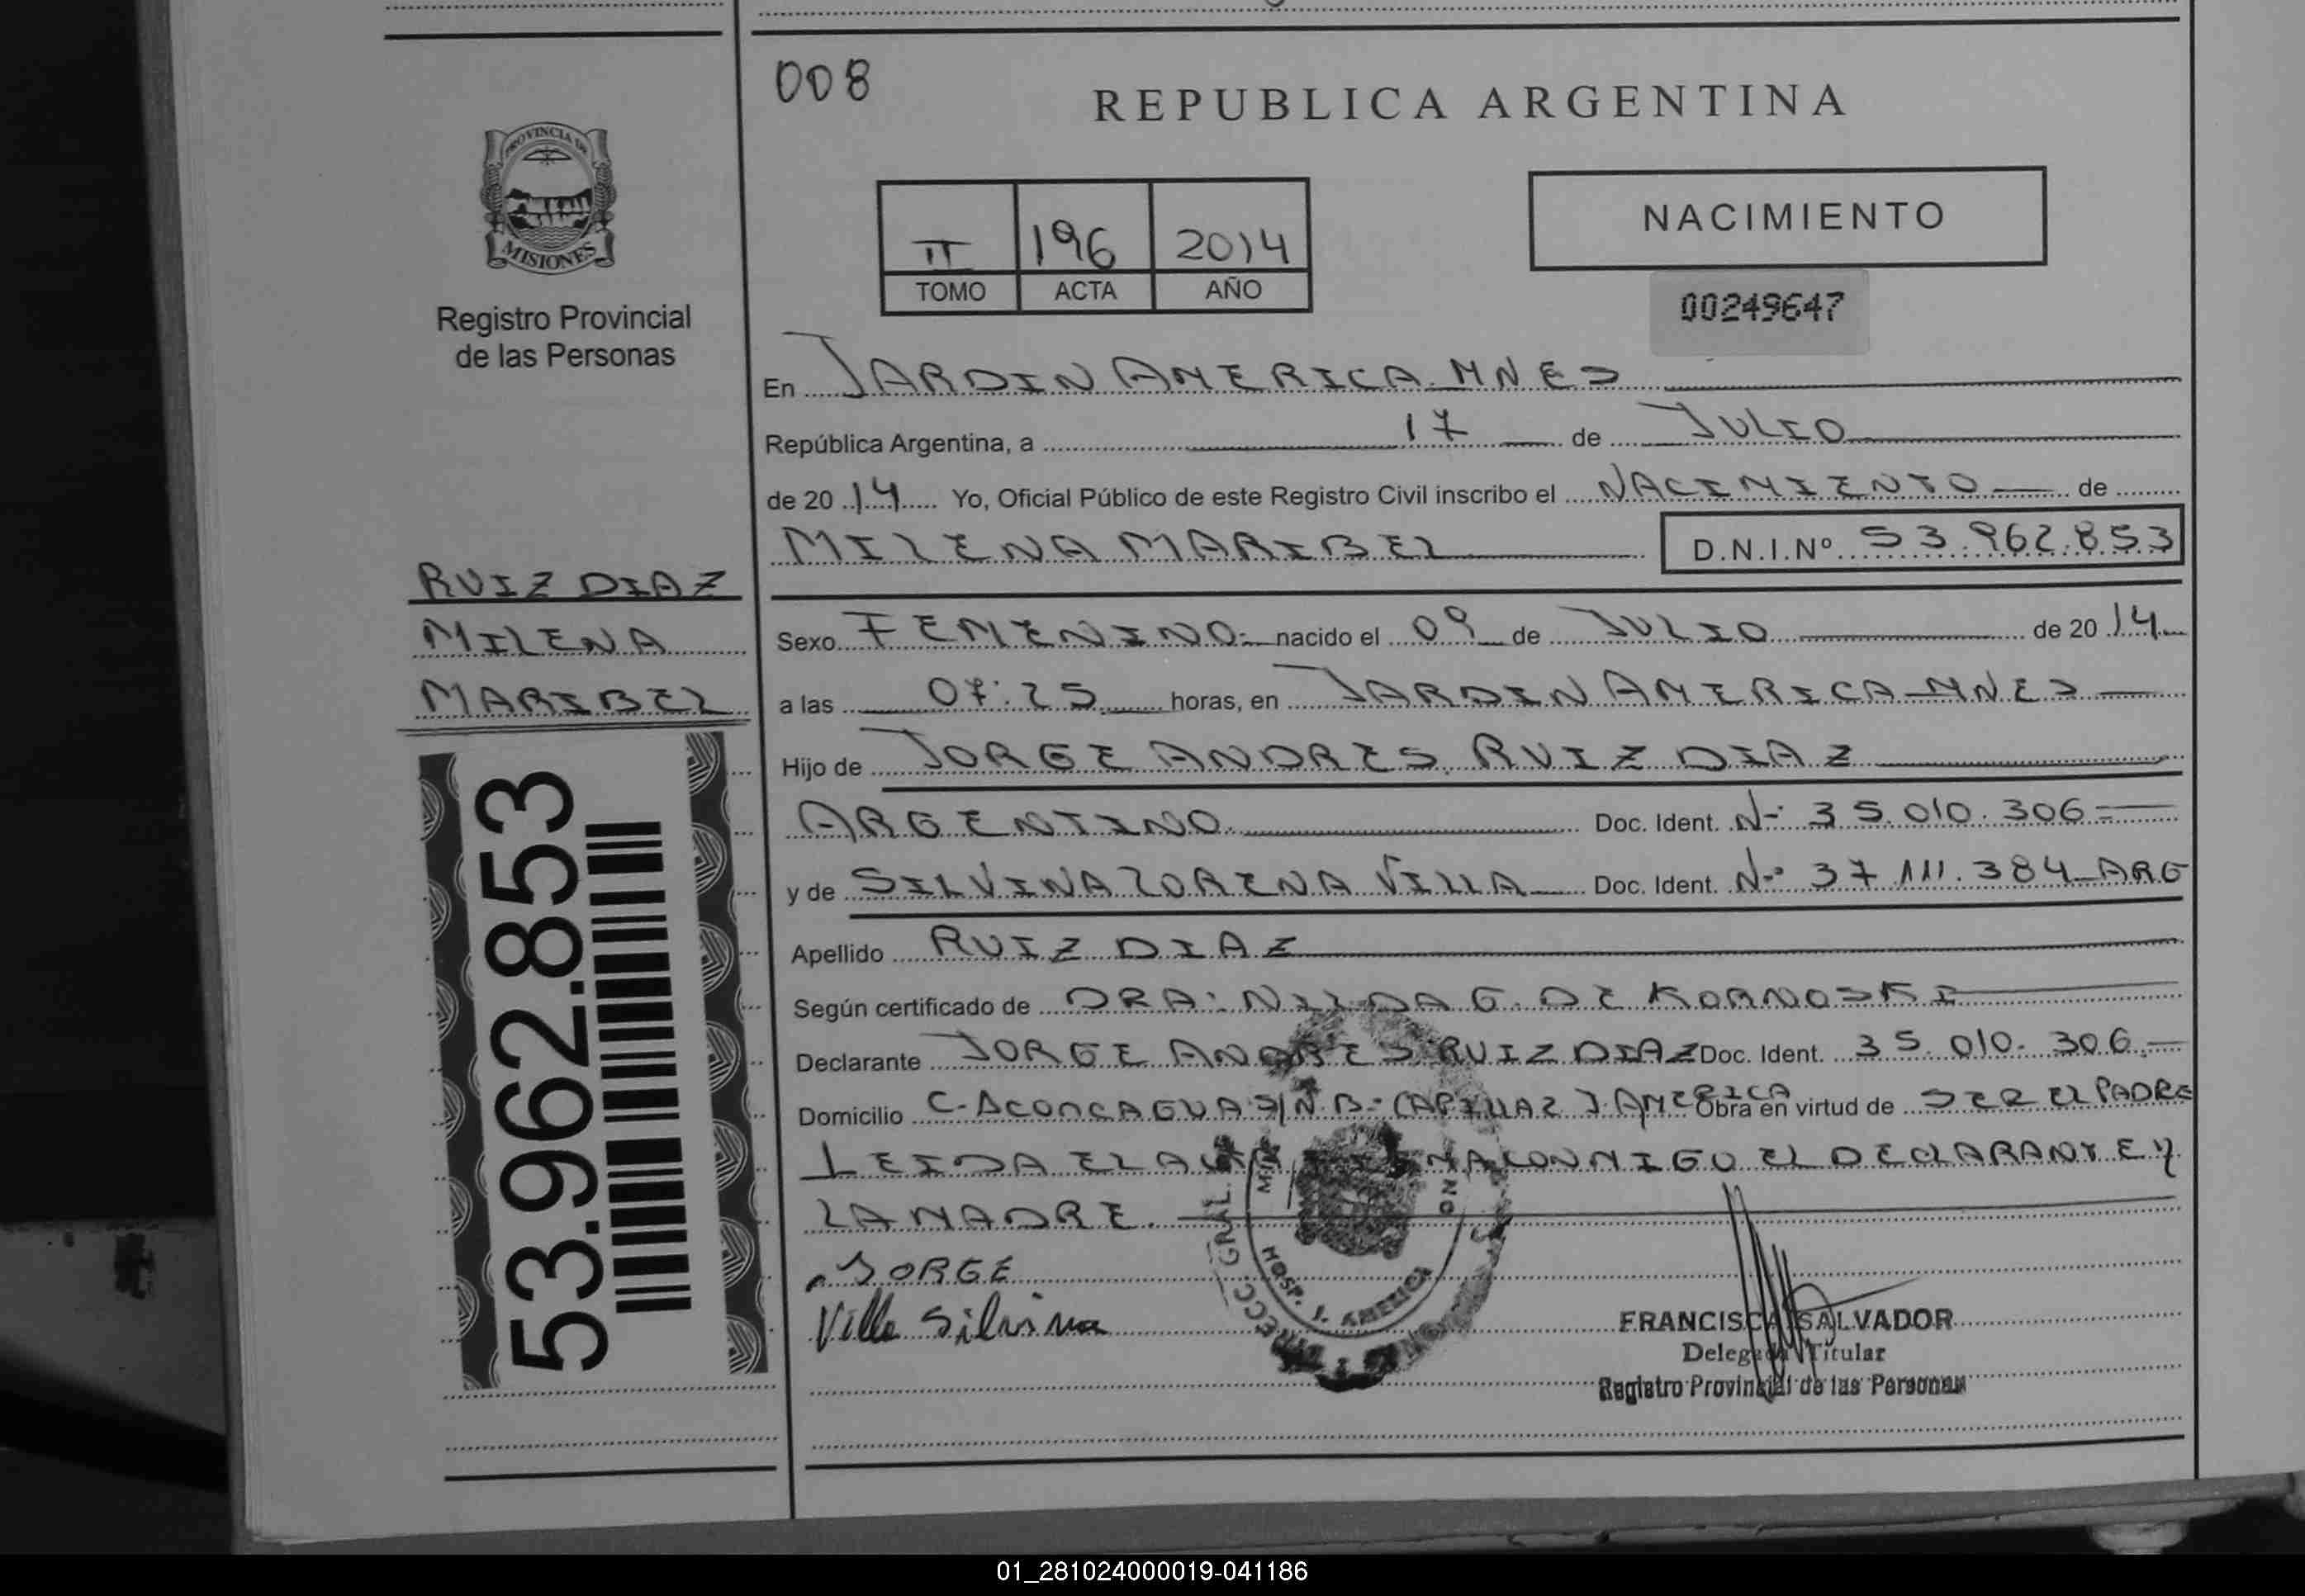 008
REPUBLICA ARGENTINA
PROVINCIA DE
MISIONES
Registro Provincial
de las Personas
II 196 2014
TOMO ACTA AÑO
NACIMIENTO
00249647
En JARDIN AMERICA. MNES
República Argentina, a 17 de JULIO
de 2014 Yo, Oficial Público de este Registro Civil inscribo el NACIMIENTO de
MILENA MARIBEL D.N.I.Nº 53.962.853
RUIZ DIAZ
MILENA
MARIBEL
53.962.853
Sexo FEMENINO nacido el 09 de JULIO de 2014
a las 07:25 horas, en JARDIN AMERICA-MNES
Hijo de JORGE ANDRES RUIZ DIAZ
ARGENTINO. Doc. Ident. Nº 35.010.306
y de SILVINA LORENA VILLA Doc. Ident. Nº 37.111.384 ARG
Apellido RUIZ DIAZ
Según certificado de DRA: NILDA G. DE KORNOSKI
Declarante JORGE ANDRES RUIZ DIAZ Doc. Ident. 35.010.306
Domicilio C-ACONCAGUA S/N B- CAPILLA 2 J. AMERICA Obra en virtud de SER EL PADRE
LEIDA EL CONMIGO EL DECLARANTE Y
LA MADRE.
JORGE
Villa Silvina
GRAL.
HOSP. J. AMERICA
FRANCISCA SALVADOR
Delegada Titular
Registro Provincial de las Personas
01_281024000019-041186